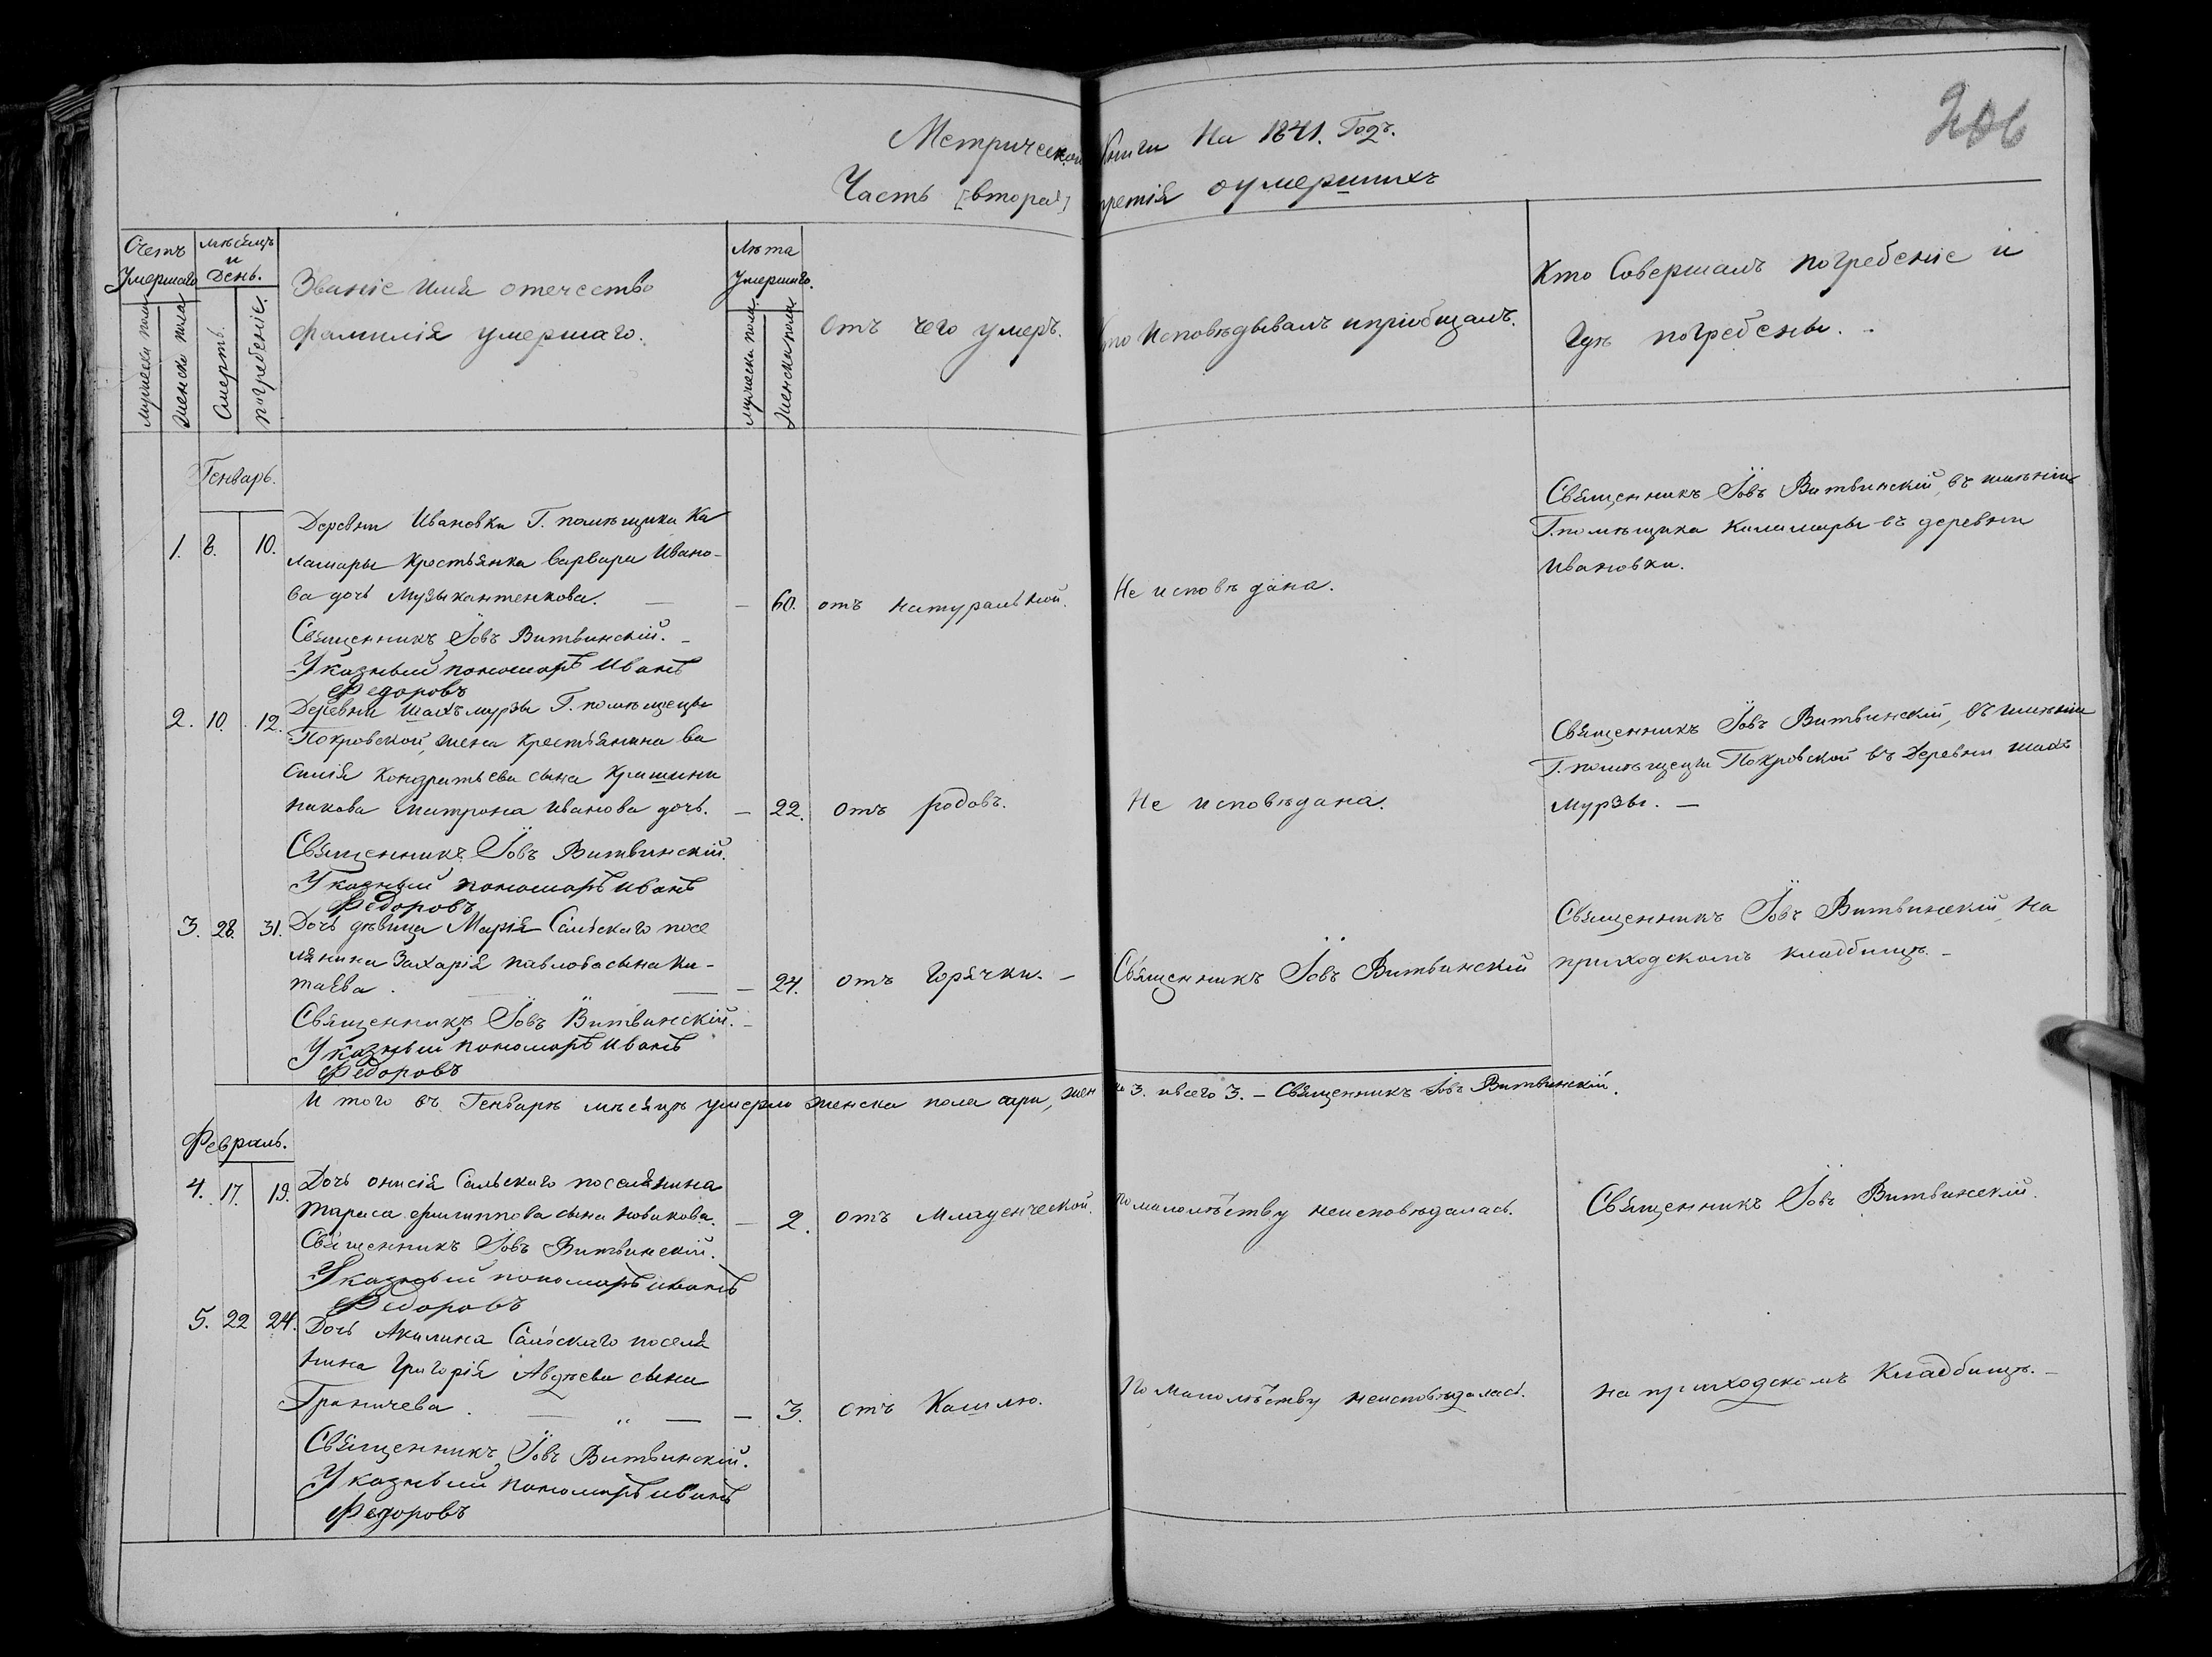 206
Метрической Книги На 1841. Годъ.
Часть [вторая] третія оумершихъ
Счетъ Умершаго
мѣсяцъ и День.
Званіе имя отечество фамилія умершаго.
Лѣта Умершаго.
отъ чего умеръ.
Кто Исповѣдывалъ ипріобщалъ.
Кто Совершалъ погребеніе и Гдѣ погребены.
мужеска пола
женска пола
Смерть.
погребеніе.
мужеска пола.
женска пола.
Генварь.
1. 8. 10.
Деревни Ивановки Г. помѣщика Ка
ламары Крестьянка варвара Ивано-
ва дочь Музыкантенкова. —
— 60. отъ натуральной.
Не исповѣдана.
Священникъ Іовъ Витвинскій, въ имѣніи
Г. помѣщика Каламары въ деревни
Ивановки.
Священникъ Іовъ Витвинскій. –
Указный пономарь Иванъ
Федоровъ
2. 10. 12.
Деревни Шахъ мурзы Г. помѣщецы
Покровской, жена Крестьянина ва
силія Кондратьева сына
никова Матрона Иванова дочь.
— 22. отъ родовъ.
Не исповѣдана.
Священникъ Іовъ Витвинскій, въ имѣніи
Г. помѣщецы Покровской въ Деревни шахъ
мурзы. —
Священникъ Іовъ Витвинскій.
Указный пономарь Иванъ
Федоровъ
3. 28. 31.
Дочь дѣвица Марія Сальскаго посе
лянина Захарія павлова сына Ки-
таева. —
— 24. отъ Горячки. –
Священникъ Іовъ Витвинскій
Священникъ Іовъ Витвинскій, на
приходскомъ кладбищѣ. –
Священникъ Іовъ Витвинскій. –
Указный пономарь Иванъ
Федоровъ
Итого въ Генварѣ мѣсяцѣ умерло женска пола 3. ивсего 3. – Священникъ Іовъ Витвинскій.
Февраль.
4. 17. 19.
Дочь онисія Сальскаго поселянина
тараса филиппова сына новикова.
— 2. отъ Младенческой.
По малолѣтству неисповѣдалась.
Священникъ Іовъ Витвинскій.
Священникъ Іовъ Витвинскій.
Указный пономарь иванъ
Федоровъ
5. 22 24.
Дочь Акилина Сальскаго поселя
нина Григорія Авдѣева сына
Граничева. —
— 3. отъ Кашлю.
По малолѣтству неисповѣдалась.
на приходскомъ Кладбищѣ. –
Священникъ Іовъ Витвинскій.
Указный пономарь иванъ
Федоровъ